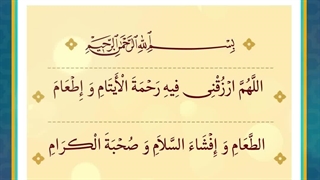 بِسْمِ اللهِ الرَّحْمٰنِ الرَّحِيْمِ
اَللّهُمَّ ارْزُقْنِی فِيهِ رَحْمَةَ الْأَيْتَامِ وَ إِطْعَامَ
الطَّعَامِ وَ إِفْشَاءَ السَّلاَمِ وَ صُحْبَةَ الْكَرَامِ